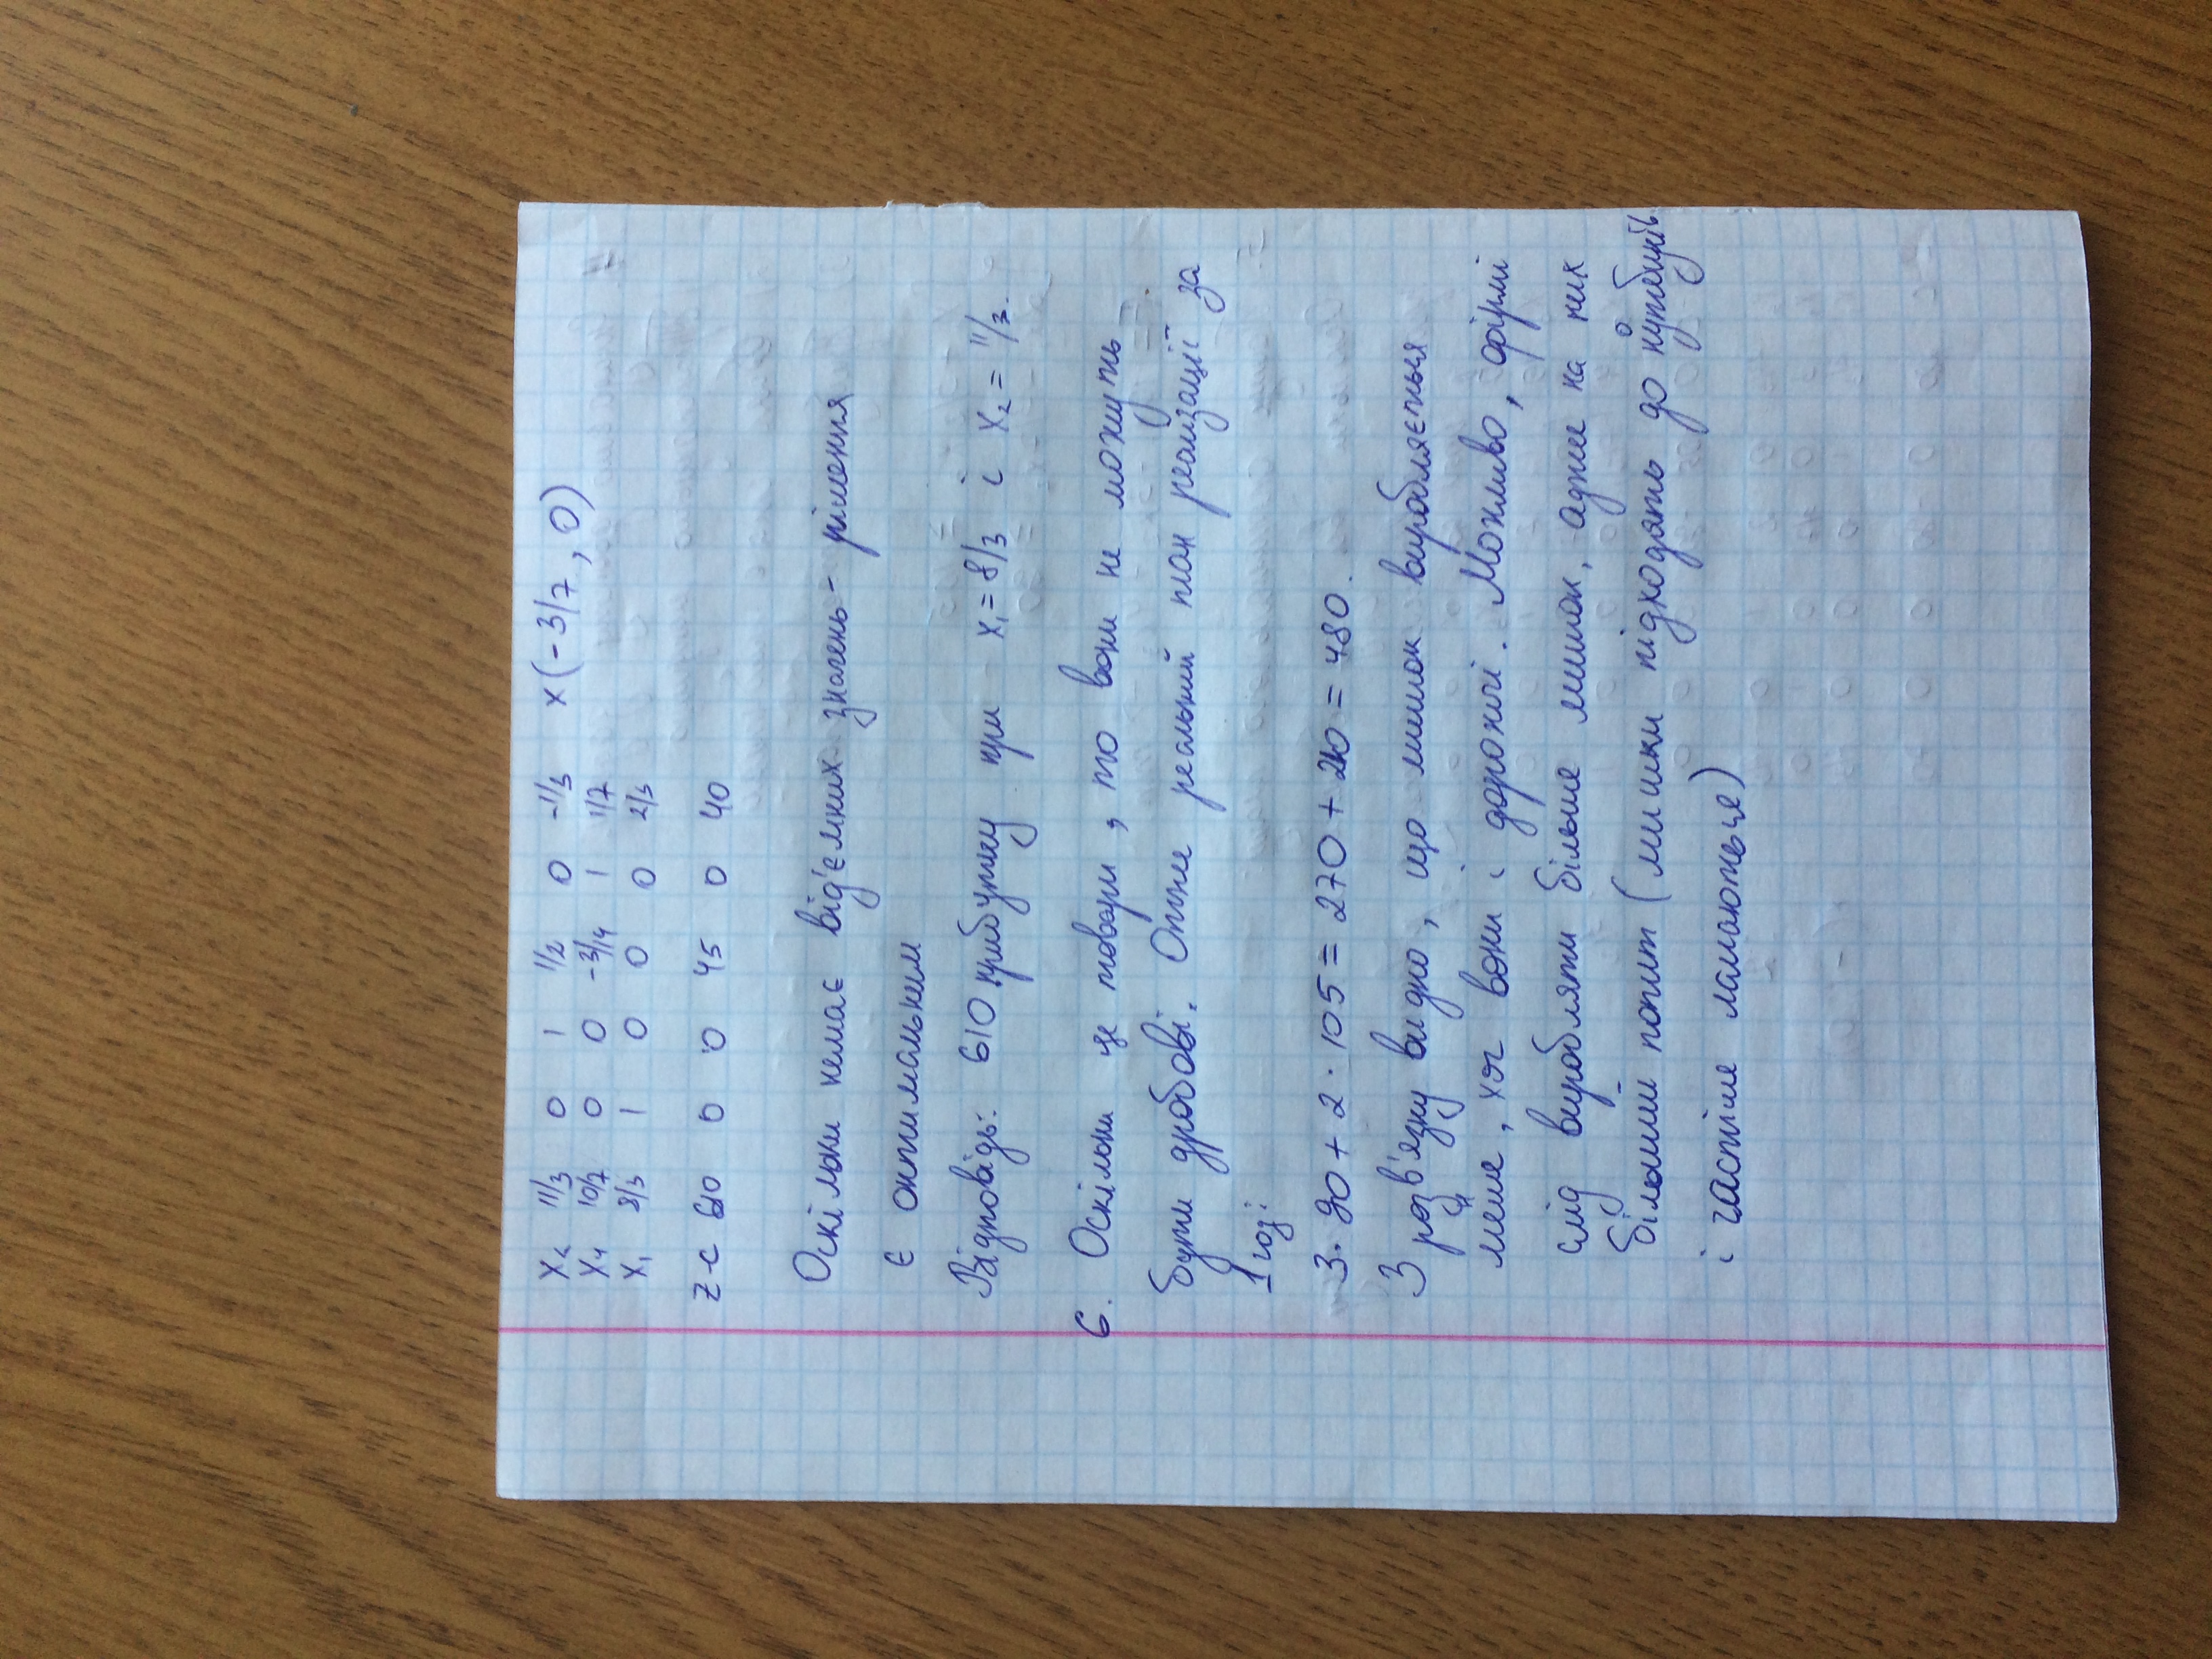 x₂ 11/3 0 1 1/2 0 -1/3 x(-3/7, 0)
x₄ 10/7 0 0 -3/14 1 1/7
x₁ 8/3 1 0 0 0 2/3
z-c 610 0 0 45 0 40
Оскільки немає від'ємних значень - рішення
є оптимальним
Відповідь: 610 прибутку при x₁ = 8/3 і x₂ = 11/3.
6. Оскільки це товари, то вони не можуть
бути дробові. Отже реальний план реалізації за
1 год:
3·90 + 2·105 = 270 + 210 = 480.
З розв'язку видно, що мишок виробляється
менше, хоч вони і дорожчі. Можливо, фірмі
слід виробляти більше мишок, адже на них
більший попит (мишки підходять до ноутбуків
і частіше ламаються)